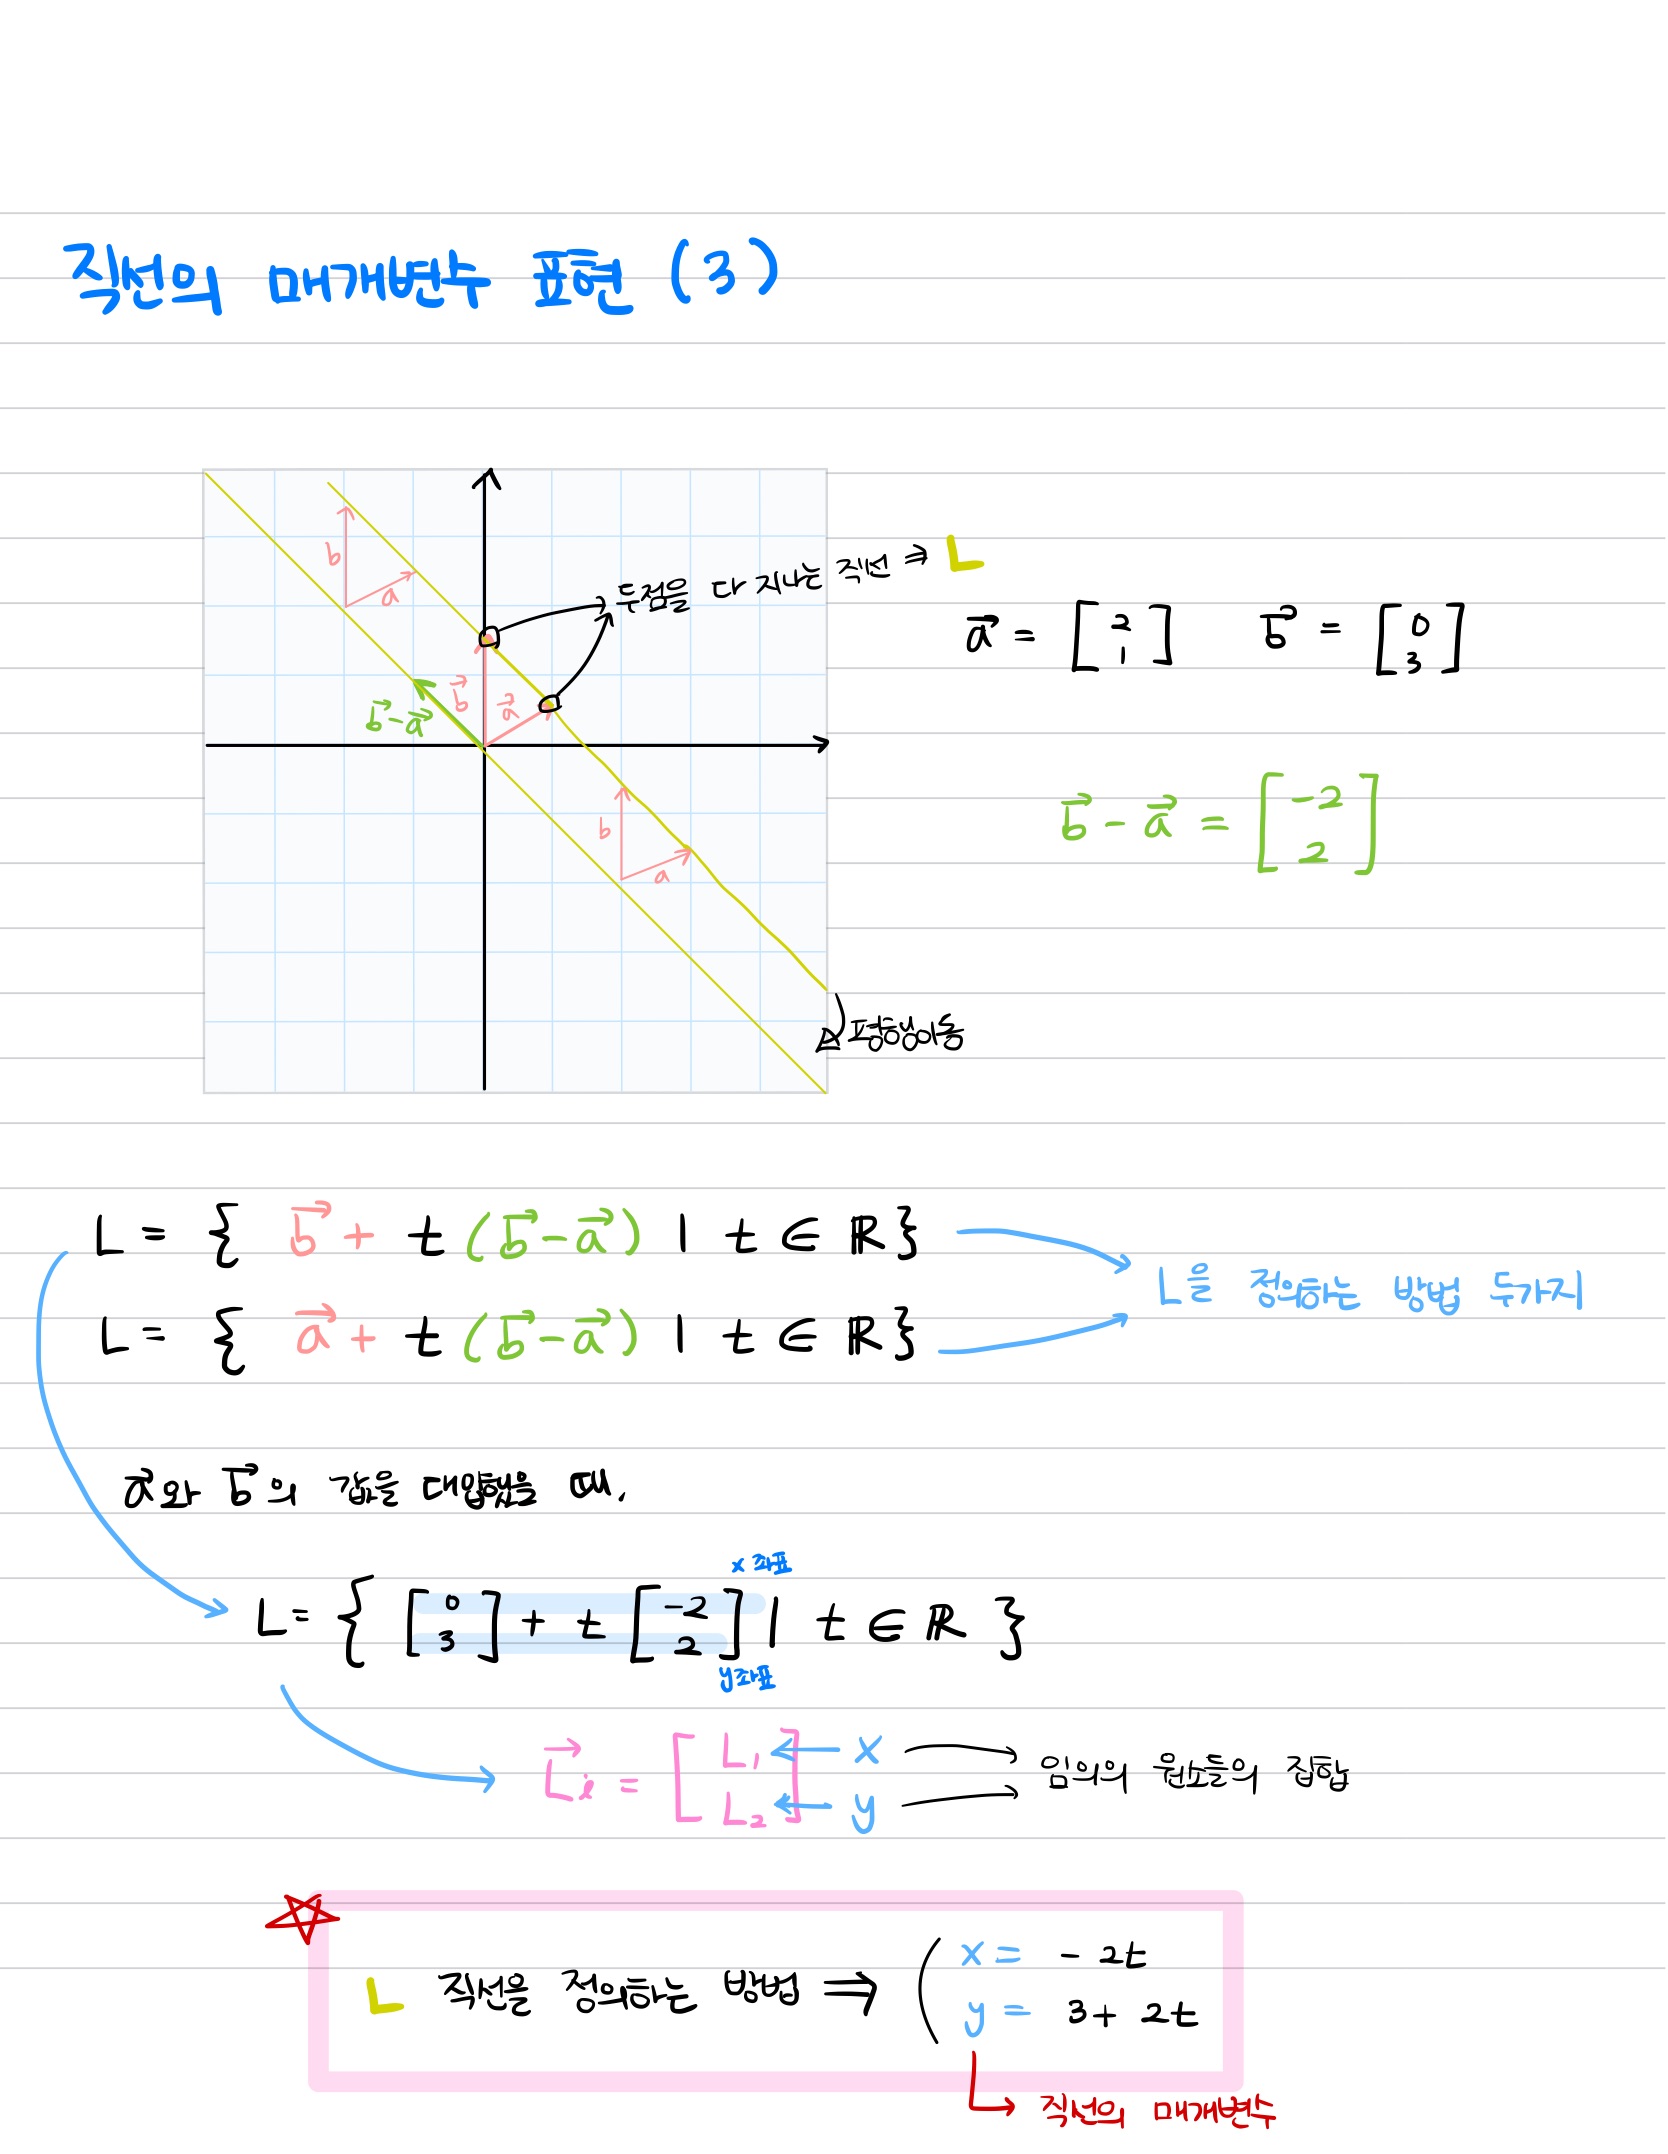 직선의 매개변수 표현 (3)
두점을 다 지나는 직선 ⇒ L
b
a
b⃗
a⃗
b⃗-a⃗
b
a
평행이동
a⃗ = [2 1] b⃗ = [0 3]
b⃗ - a⃗ = [-2 2]
L = { b⃗ + t (b⃗-a⃗) | t ∈ ℝ }
L = { a⃗ + t (b⃗-a⃗) | t ∈ ℝ }
L을 정의하는 방법 두가지
a⃗와 b⃗의 값을 대입했을 때,
x좌표
L = { [0 3] + t [-2 2] | t ∈ ℝ }
y좌표
L⃗i = [L₁ L₂] ← x ← y
임의의 원소들의 집합
L 직선을 정의하는 방법 ⇒ ( x = - 2t
y = 3 + 2t
직선의 매개변수